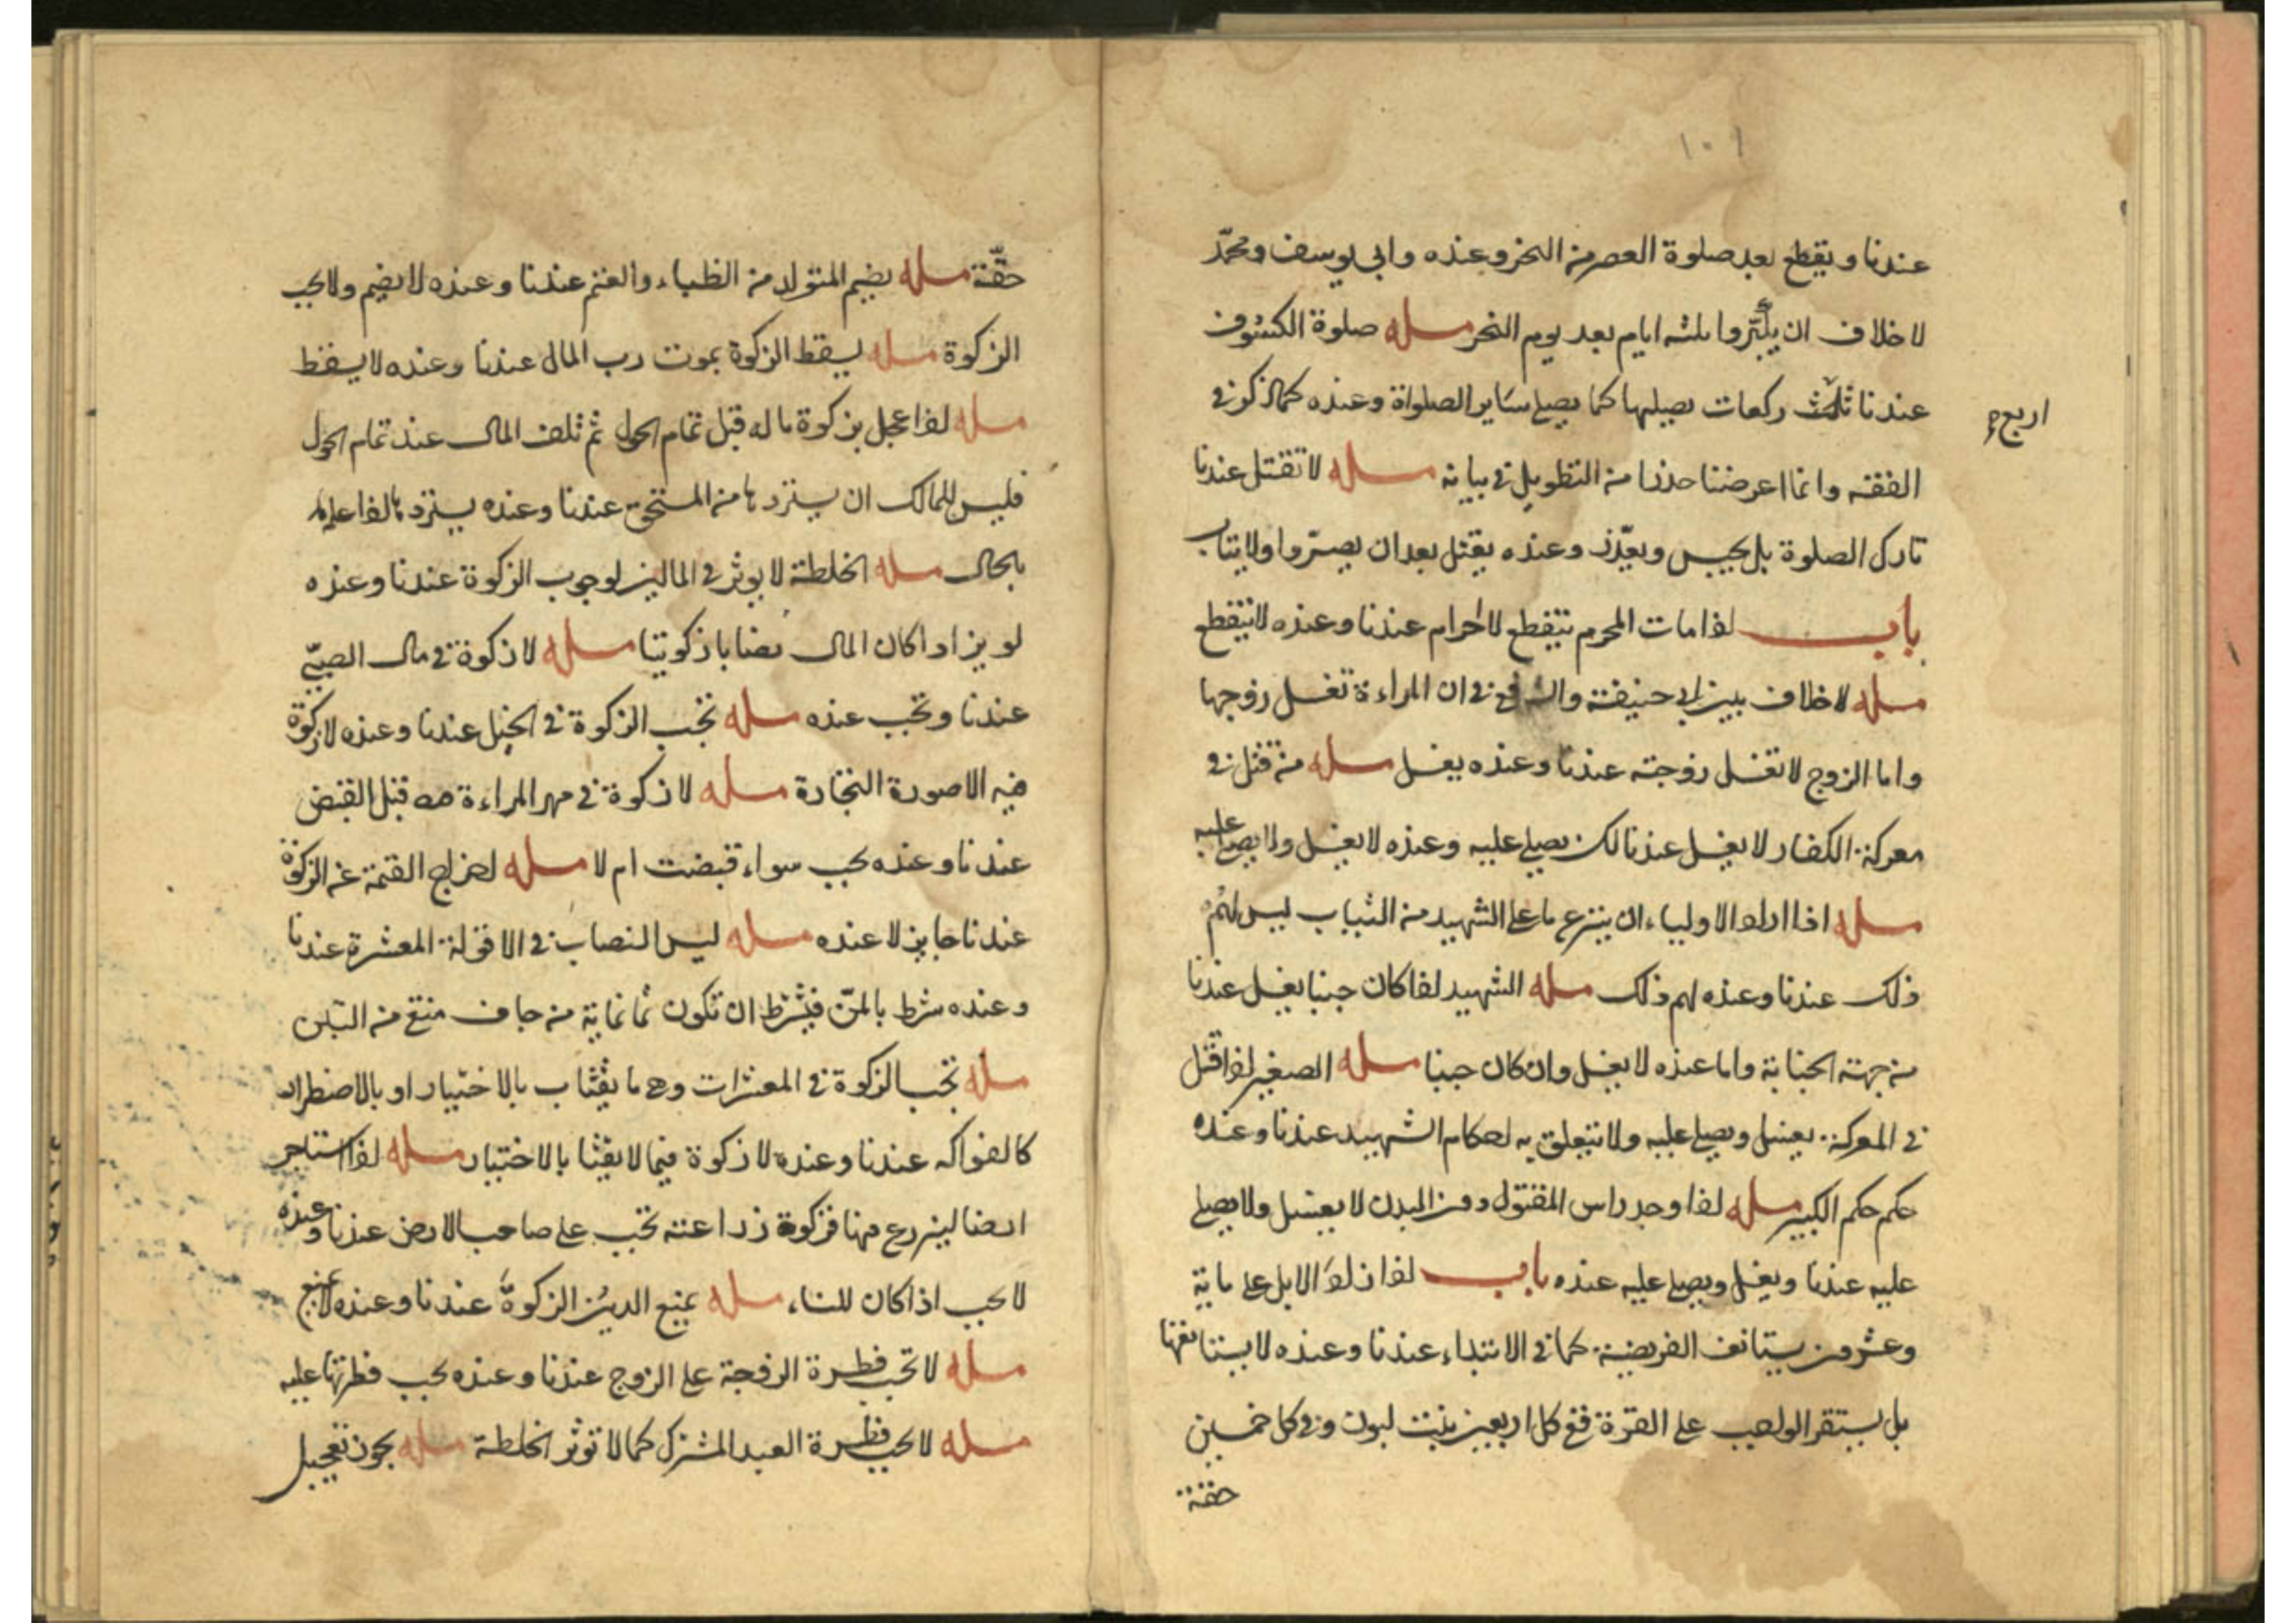 ١٠١
عندنا ويقطع بعد صلوة العصر من النحر وعنده وابي يوسف ومحمّد
لا خلاف ان يكبّروا ثلثه ايام بعد يوم النحر مسله صلوة الكسوف
عندنا ثلث ركعات يصليها كما يصلي ساير الصلواة وعنده كما ذكر في
اربع
الفقه وانما اعرضنا حذرا من التطويل في بيانه مسله لا تقتل عندنا
تارك الصلوة بل يحبس ويعذّر وعنده يقتل بعد ان يصبّروا ولا يتاب
باب لذا مات المحرم ينقطع لاحرام عندنا وعنده لا ينقطع
مسله لا خلاف بين ابي حنيفة والشافعي في ان المراءة تغسل زوجها
واما الزوج لا تغسل زوجته عندنا وعنده يغسل مسله من قتل في
معركة الكفار لا يغسل عندنا لكن يصلي عليه وعنده لا يغسل ولا يصلي عليه
مسله اذا اراد الاولياء ان ينزع ما على الشهيد من الثياب ليس لهم
ذلك عندنا وعنده لهم ذلك مسله الشهيد لذا كان جنبا يغسل عندنا
من جهة الجنابة واما عنده لا يغسل وان كان جنبا مسله الصغير لذا قتل
في المعركة يغسل ويصلي عليه ولا يتعلق به احكام الشهيد عندنا وعنده
حكم حكم الكبير مسله لذا وجد راس المقتول دون البدن لا يغسل ولا يصلي
عليه عندنا ويغسل ويصلي عليه عنده باب لذا زاد الابل على ماية
وعشرون يستانف الفريضة كما في الابتداء عندنا وعنده لا يستانفها
بل يستقر الواجب على القرة ففي كل اربعين بنت لبون وفي كل خمسين
حقة
حقّة مسله يضم المتولد من الظباء والغنم عندنا وعنده لا يضم ولا يجب
الزكوة مسله يسقط الزكوة بموت رب المال عندنا وعنده لا يسقط
مسله لذا عجل بزكوة ماله قبل تمام الحول ثم تلف المال عند تمام الحول
فليس للمالك ان يسترد ها من المستحق عندنا وعنده يسترد ها لذا علم
بالحال مسله الخلطة لا يوثر في المالين لوجوب الزكوة عندنا وعنده
لو يزاد اكان المال نصابا زكوتيا مسله لا زكوة في مال الصبيّ
عندنا وتجب عنده مسله تجب الزكوة في الخيل عندنا وعنده لا زكوة
فيه الا صورة التجارة مسله لا زكوة في مهر المراءة قبل القبض
عندنا وعنده يجب سواء قبضت ام لا مسله اخراج القيمة عن الزكوة
عندنا جايز لا عنده مسله ليس النصاب في الاقولة المعشرة عندنا
وعنده شرط بالمنّ فيشرط ان تكون ثمانماية من جاف منقع من التبن
مسله تجب الزكوة في المعشرات وهي ما يقتاب بالاختيار او بالاضطرار
كالفواكه عندنا وعنده لا زكوة فيما لا يقتا بالاختيار مسله لذا استاجر
ارضا ليزرع منها فزكوة زراعته تجب على صاحب الارض عندنا وعنده
لا يجب اذا كان للناء مسله يمنع الدين الزكوة عندنا وعنده لا يمنع
مسله لا تجب فطرة الزوجة على الزوج عندنا وعنده يجب فطرتها عليه
مسله لا يجب فطرة العبد المشترك كما لا توثر الخلطة مسله يجوز تعجيل